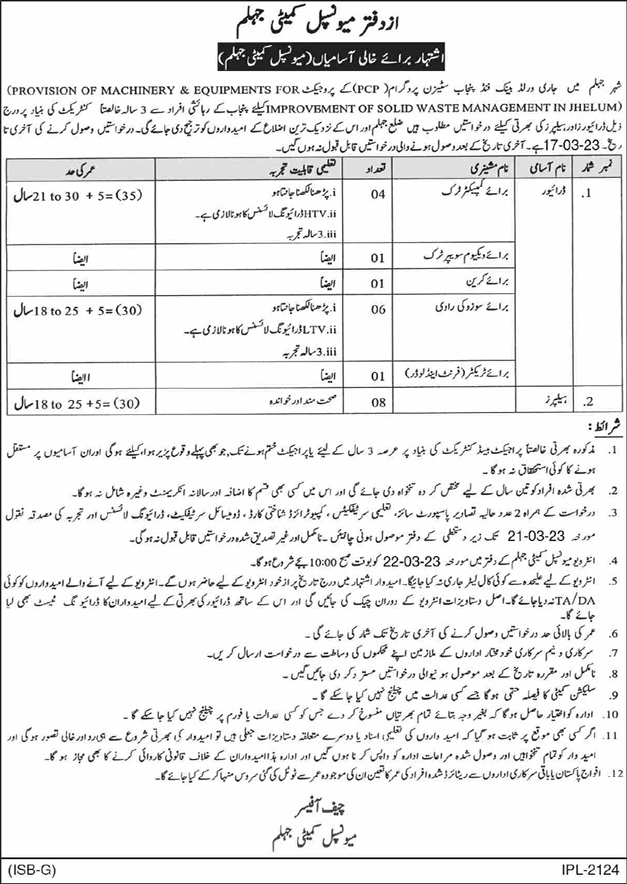 از دفتر میونسپل کمیٹی جہلم
اشتہار برائے خالی آسامیاں (میونسپل کمیٹی جہلم)
شہر جہلم میں جاری ورلڈ بینک فنڈ پنجاب سٹیزن پروگرام (PCP) کے پروجیکٹ PROVISION OF MACHINERY & EQUIPMENTS FOR)
IMPROVEMENT OF SOLID WASTE MANAGEMENT IN JHELUM) کیلئے پنجاب کے رہائشی افراد سے 3 سالہ خالصتاً کنٹریکٹ کی بنیاد پر درج
ذیل ڈرائیورز اور ہیلپرز کی بھرتی کیلئے درخواستیں مطلوب ہیں ضلع جہلم اور اس کے نزدیک ترین اضلاع کے امیدواروں کو ترجیح دی جائے گی۔ درخواستیں وصول کرنے کی آخری تا
ریخ 17-03-23 ہے۔ آخری تاریخ کے بعد وصول ہونے والی درخواستیں قابل قبول نہ ہوں گیں۔
نمبر شمار نام آسامی نام مشینری تعداد تعلیمی قابلیت تجربہ عمر کی حد
1. ڈرائیور برائے کمپیکٹر ٹرک 04 i. پڑھنا لکھنا جانتا ہو 21 to 30 + 5= (35) سال
ii. HTV ڈرائیونگ لائسنس کا ہونا لازمی ہے۔
iii. 3 سالہ تجربہ
برائے ویکیوم سویپر ٹرک 01 ایضاً ایضاً
برائے کرین 01 ایضاً ایضاً
برائے سوزوکی راوی 06 i. پڑھنا لکھنا جانتا ہو 18 to 25 + 5= (30) سال
ii. LTV ڈرائیونگ لائسنس کا ہونا لازمی ہے۔
iii. 3 سالہ تجربہ
برائے ٹریکٹر (فرنٹ اینڈ لوڈر) 01 ایضاً اایضاً
2. ہیلپرز 08 صحت مند اور خواندہ 18 to 25 +5= (30) سال
شرائط:
1. مذکورہ بھرتی خالصتاً پراجیکٹ بیسڈ کنٹریکٹ کی بنیاد پر عرصہ 3 سال کے لیئے یا پراجیکٹ ختم ہونے تک، جو بھی پہلے وقوع پزیر ہوا، کیلئے ہوگی اور ان آسامیوں پر مستقل
ہونے کا کوئی استحقاق نہ ہو گا۔
2. بھرتی شدہ افراد کو تین سال کے لیے مختص کردہ تنخواہ دی جائے گی اور اس میں کسی بھی قسم کا اضافہ اور سالانہ انکریمنٹ وغیرہ شامل نہ ہو گا۔
3. درخواست کے ہمراہ 2 عدد حالیہ تصاویر پاسپورٹ سائز، تعلیمی سرٹیفکیٹس، کمپیوٹرائزڈ شناختی کارڈ، ڈومیسائل سرٹیفکیٹ، ڈرائیونگ لائسنس اور تجربہ کی مصدقہ نقول
مورخہ 21-03-23 تک زیر دستخطی کے دفتر موصول ہونی چاہیئں۔ نامکمل اور غیر تصدیق شدہ درخواستیں قابل قبول نہ ہوگی۔
4. انٹرویو میونسپل کمیٹی جہلم کے دفتر میں مورخہ 22-03-23 کو بوقت صبح 10:00 بجے شروع ہو گا۔
5. انٹرویو کے لیے علیحدہ سے کوئی کال لیٹر جاری نہ کیا جائیگا۔ امیدوار اشتہار میں درج تاریخ پر از خود انٹرویو کے لیے حاضر ہوں گے۔ انٹرویو کے لیے آنے والے امیدواروں کو کوئی
TA/DA نہ دیا جائے گا۔ اصل دستاویزات انٹرویو کے دوران چیک کی جائیں گی اور اس کے ساتھ ڈرائیور کی بھرتی کے لیے امیدواران کا ڈرائیونگ ٹیسٹ بھی لیا
جائے گا۔
6. عمر کی بالائی حد درخواستیں وصول کرنے کی آخری تاریخ تک شمار کی جائے گی۔
7. سرکاری و نیم سرکاری خود مختار اداروں کے ملازمین اپنے محکموں کی وساطت سے درخواست ارسال کریں۔
8. نامکمل اور مقررہ تاریخ کے بعد موصول ہونیوالی درخواستیں مسترد کر دی جائیں گیں۔
9. سلیکشن کمیٹی کا فیصلہ حتمی ہو گا جسے کسی عدالت میں چیلنج نہیں کیا جا سکے گا۔
10. ادارہ کو اختیار حاصل ہو گا کہ بغیر وجہ بتائے تمام بھرتیاں منسوخ کر دے جس کو کسی عدالت یا فورم پر چیلنج نہیں کیا جا سکے گا۔
11. اگر کسی بھی موقع پر ثابت ہو گیا کہ امیدواروں کی تعلیمی اسناد یا دوسرے متعلقہ دستاویزات جعلی ہیں تو امیدوار کی بھرتی شروع سے ہی رد اور خالی تصور ہو گی اور
امیدوار کو تمام تنخواہیں اور وصول شدہ مراعات ادارہ کو واپس کرنا ہوں گیں اور ادارہ ہذا امیدواران کے خلاف قانونی کاروائی کرنے کا بھی مجاز ہو گا۔
12. افواج پاکستان یا باقی سرکاری اداروں سے ریٹائرڈ شدہ افراد کی عمر کا تعین ان کی موجودہ عمر سے ٹوٹل کی گئی سروس منہا کر کے کیا جائے گا۔
چیف آفیسر
میونسپل کمیٹی جہلم
(ISB-G) IPL-2124